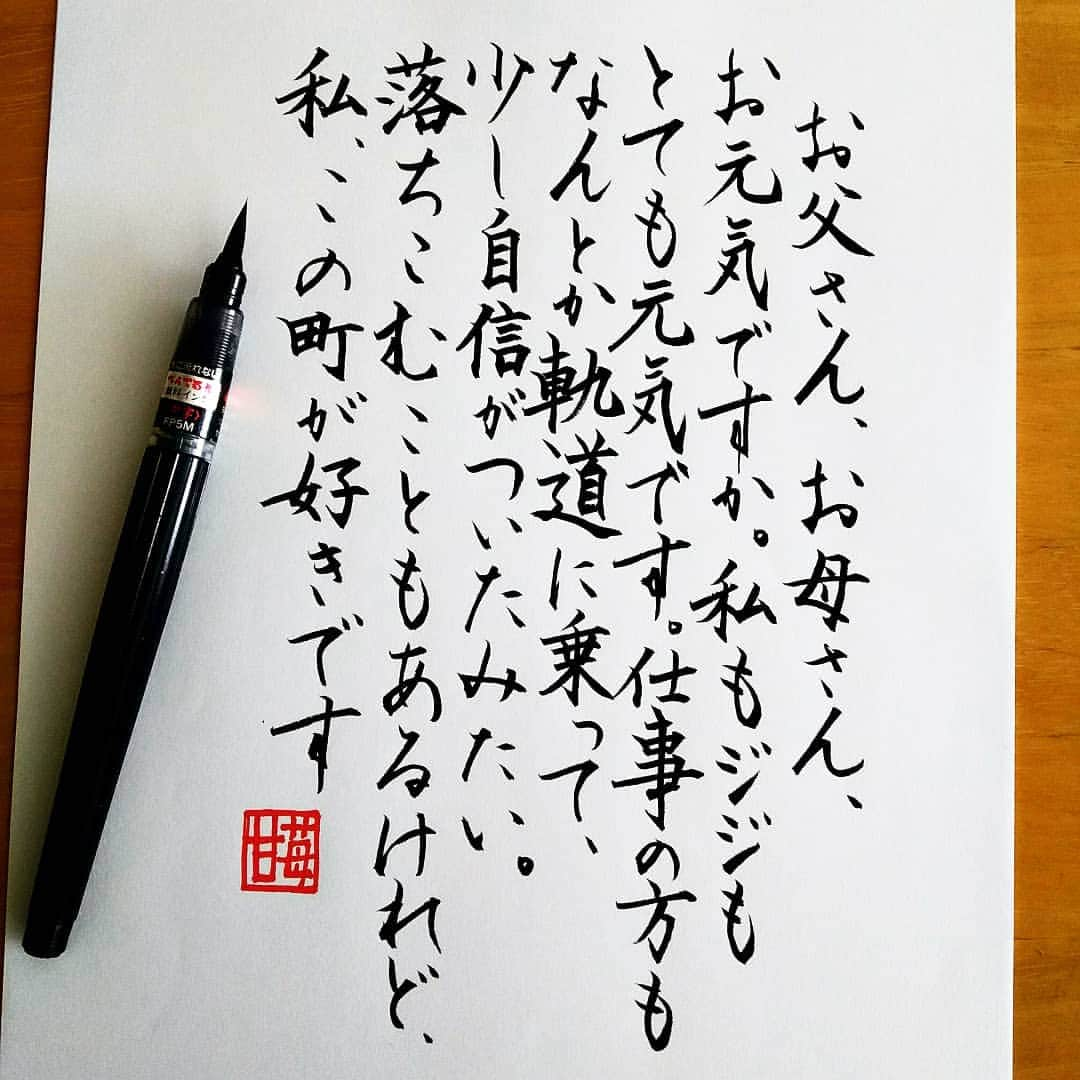 お父さん、お母さん、
お元気ですか。私もジジも
とても元気です。仕事の方も
なんとか軌道に乗って、
少し自信がついたみたい。
落ちこむこともあるけれど、
私、この町が好きです
甘苺
ぺんてる
顔料インク
FP5M